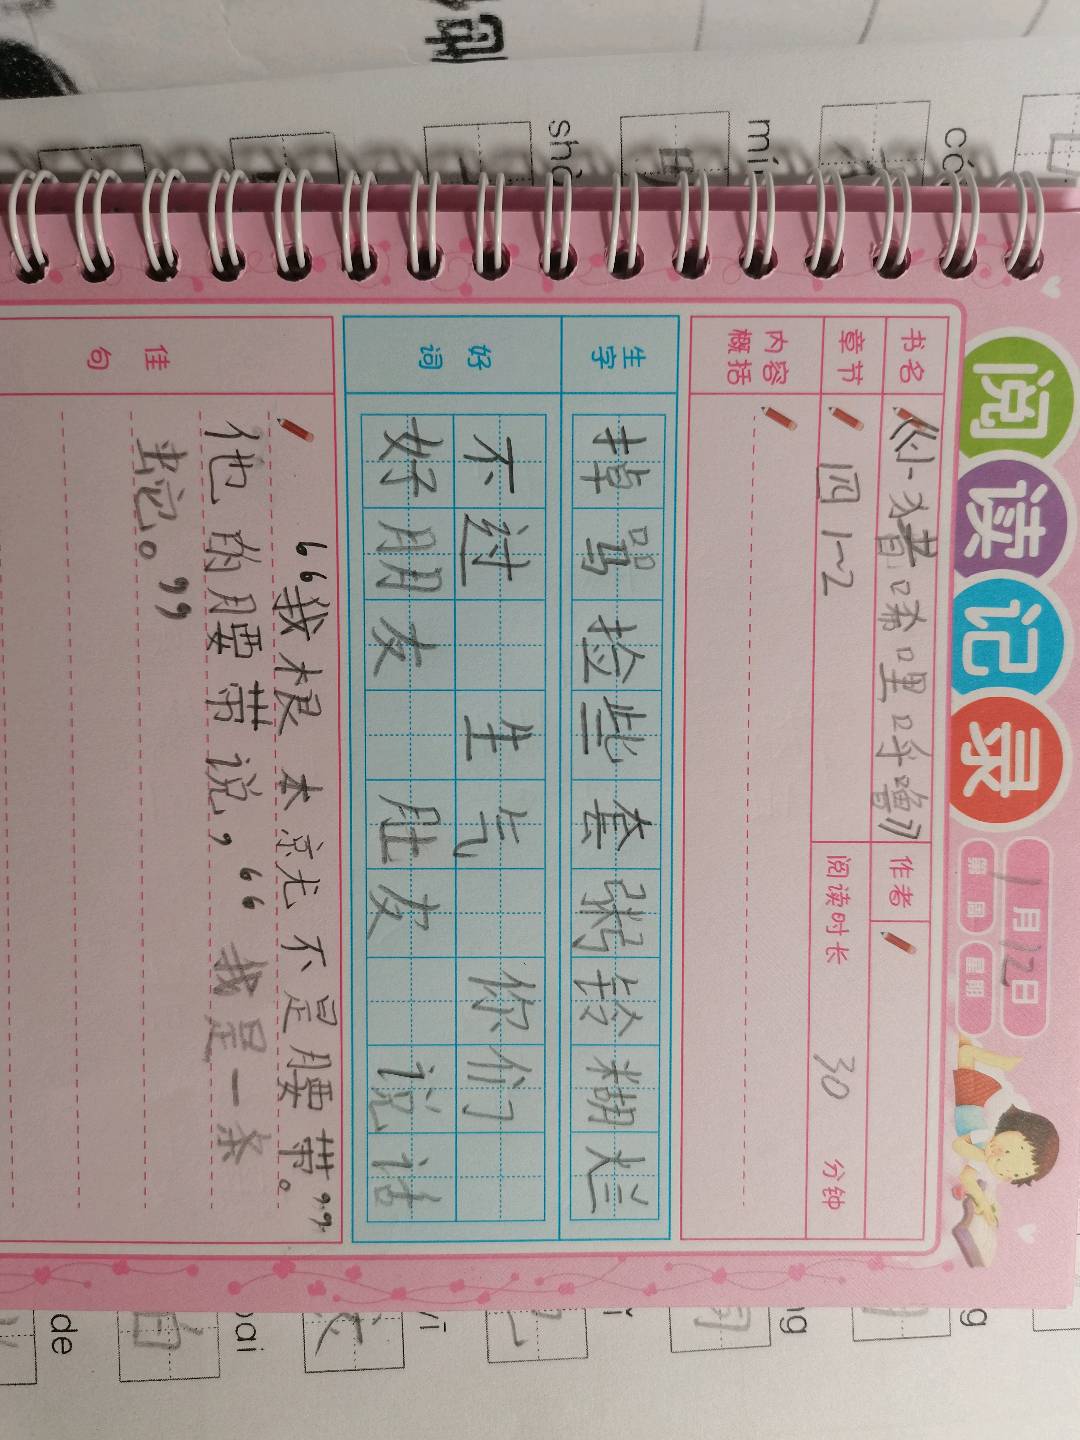 阅读记录
1月12日
第 周 星期
书名 《小猪唏哩呼噜》 作者
章节 四 1~2 阅读时长 30 分钟
内容概括
生字 掉 骂 捡 些 套 粥 铃 糊 烂
好词 不过 生气 你们
好朋友 肚友 说话
佳句 “我根本就不是腰带。”
他的腰带说，“我是一条
蛇。”
có
mí
shè
g
ng
yī
bai
de